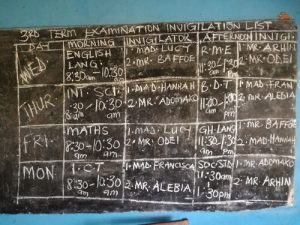 3RD TERM EXAMINATION INVIGILATION LIST
DAY MORNING INVIGILATOR AFTERNOON INVIGI
WED. ENGLISH LANG: 8:30am 10:30am 1. MAD. LUCY 2. MR. BAFFOE R.M.E 1. MR. ARHIN 2. MR. ODEI
THUR. INT. SCI. 8:30am 10:30am 1. MAD. HANNAH 2. MR. ADOMAKO B.D.T 11:30am 1. MAD. FRAN 2. MR. ALEBIA
FRI. MATHS 8:30am 10:30am 1. MAD. LUCY 2. MR. ODEI GH. LANG 11:30am 1. MR. BAFFOE 2. MAD. HANNAH
MON I.C.T 8:30am 10:30am 1. MAD. FRANCISCA 2. MR. ALEBIA SOC. STD 11:30am 1:30pm 1. MR. ADOMAKO 2. MR. ARHIN